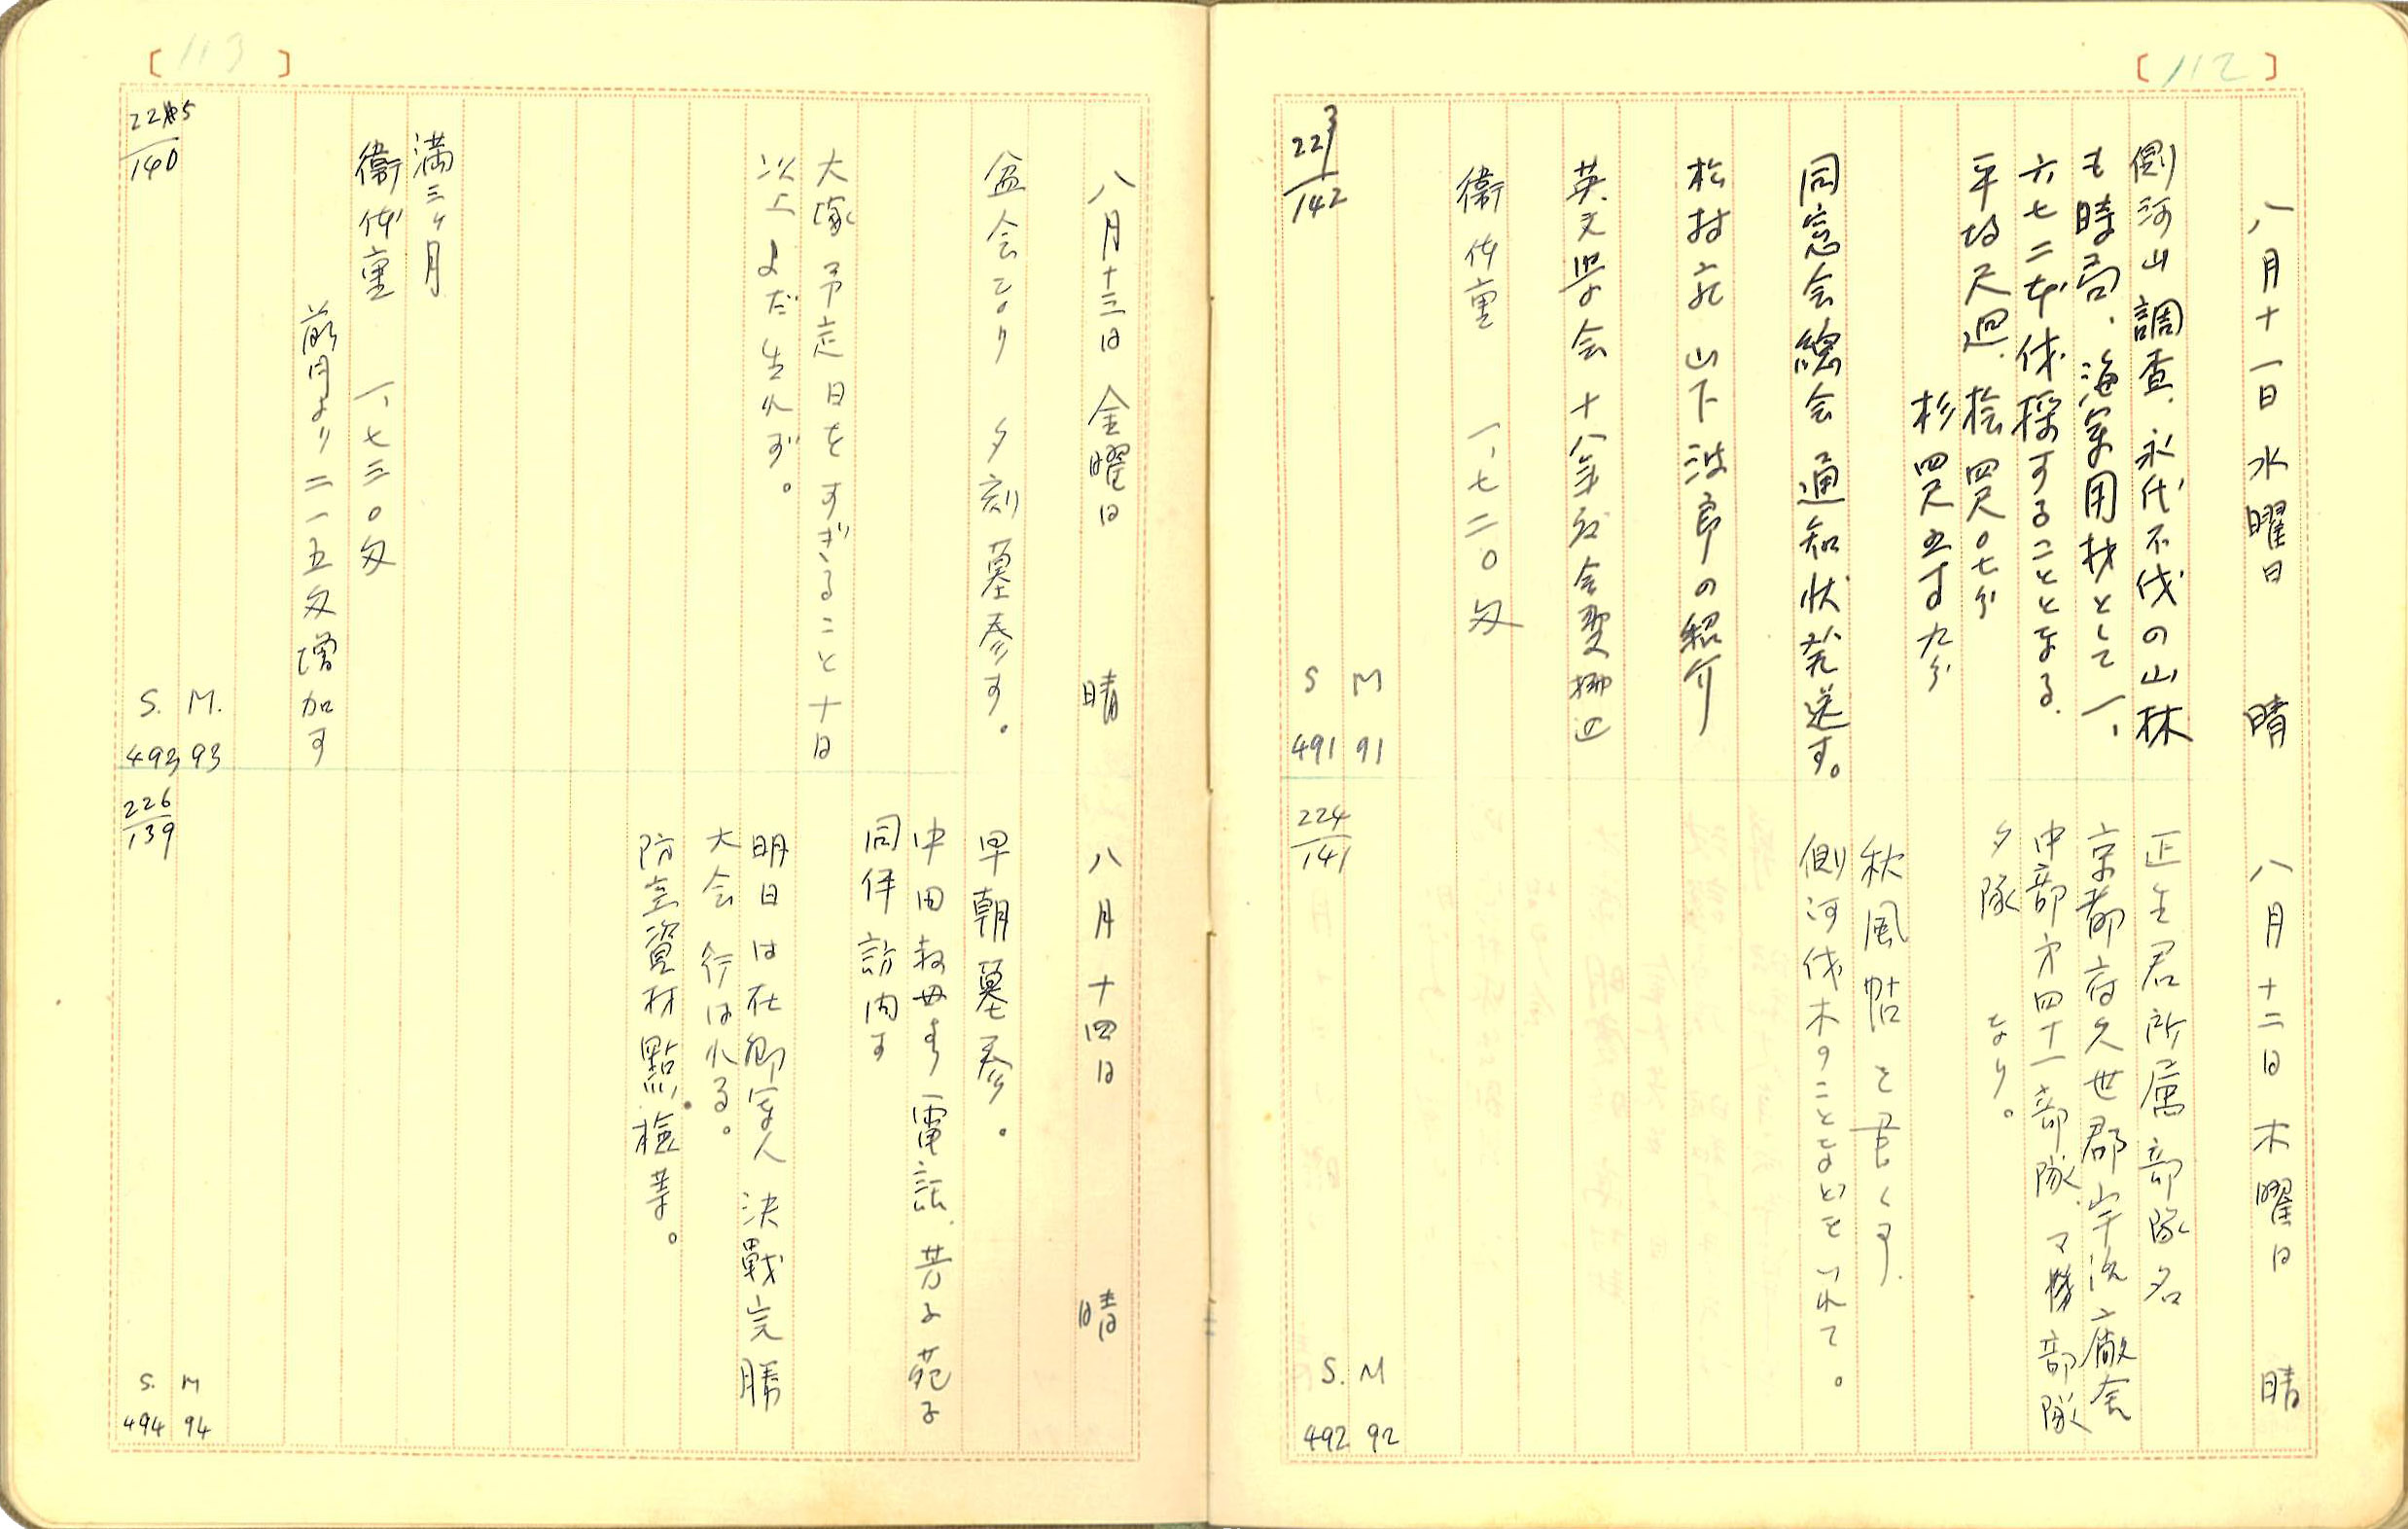 [112]
八月十一日 水曜日 晴
側河山調査、永代不伐の山林
も時局、海軍用材として一、
六七二本伐採することとなる.
平均尺廻. 桧四尺〇七分
杉四尺五寸九分
同窓会總会通知状発送す。
松村 山下波郎の紹介
英文学会 十八年度会費
衞 体重 一、七二〇匁
223/142
S M
491 91
八月十二日 木曜日 晴
正生君所属部隊名
京都府久世郡宇治廠舎
中部才四十一部隊. マ 部隊
夕隊 なり。
秋風帖を書く
側河伐木のことなどをいれて。
224/141
S. M
492 92
[113]
八月十三日 金曜日 晴
盆会なり 夕刻墓参す。
大塚 予定日をすぎること十日
以上まだ生れず。
満三ヶ月
衞 体重 一、七三〇匁
前月より二一五匁増加す
225/140
S. M.
493 93
八月十四日 晴
早朝墓参。
中田叔母より電話. 芳子苑子
同伴訪内す
明日は在郷軍人決戦完勝
大会行はれる。
防空資材點檢
226/139
S. M
494 94